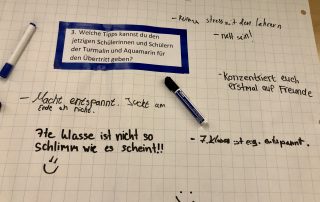 3. Welche Tipps kannst du den
jetzigen Schülerinnen und Schülern
der Turmalin und Aquamarin für
den Übertritt geben?
- stress mit den lehrern
- nett sein!
- Konzentriert euch
erstmal auf Freunde
- Macht entspannt. Juckt am
Ende eh nicht.
7te Klasse ist nicht so
schlimm wie es scheint!!
- 7. Klasse ist eig. entspannt.